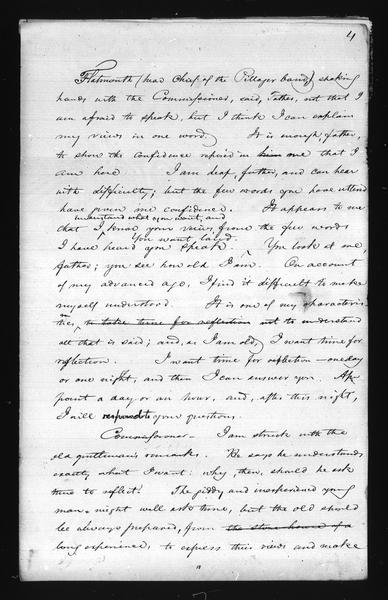 4
Flatmouth (head Chief of the Pillager band) shaking
hands with the Commissioner, said, Father, not that I
am afraid to speak, but I think I can explain
my views in one word, It is enough, father,
to show the confidence reposed in him me that I
am here I am deaf, father, and can hear
with difficulty; but the few words you have uttered
have given me confidence. It appears to me
understand what you want, and
that I know your views, from the few words
You want land.
I have heard you speak. You look at me,
father; you see how old I am. On account
of my advanced age, I find it difficult to make
myself understood. It is one of my characteris-
tics, to take time for reflection not to understand
all that is said; and, as I am old, I want time for
reflection. I want time for reflection - one day
or one night, and then I can answer you. Ap-
point a day or an hour, and, after this night,
I will respond to your questions.
Commissioner - I am struck with the
old gentleman's remarks. He says he understands
exactly what I want: why, then, should he ask
time to reflect. The giddy and inexperienced young
man might will ask time, but the old should
be always prepared, from the store house of a
long experience, to express their views and make